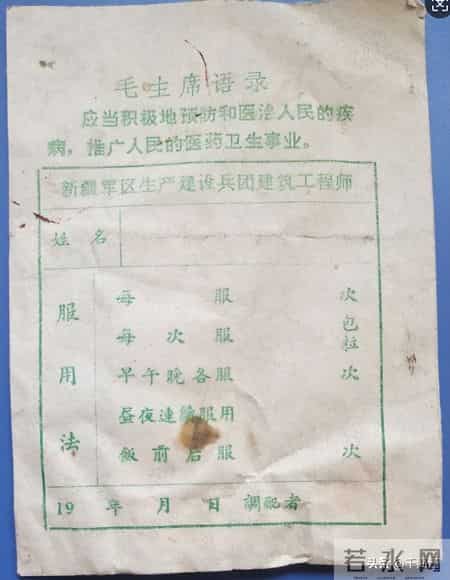 毛主席语录
应当积极地预防和医治人民的疾
病，推广人民的医药卫生事业。
新疆军区生产建设兵团建筑工程师
姓名
服用法
每 服 次
每次服 包粒
早午晚各服 次
昼夜連續服用
飯前后服 次
19 年 月 日 調配者
若水网